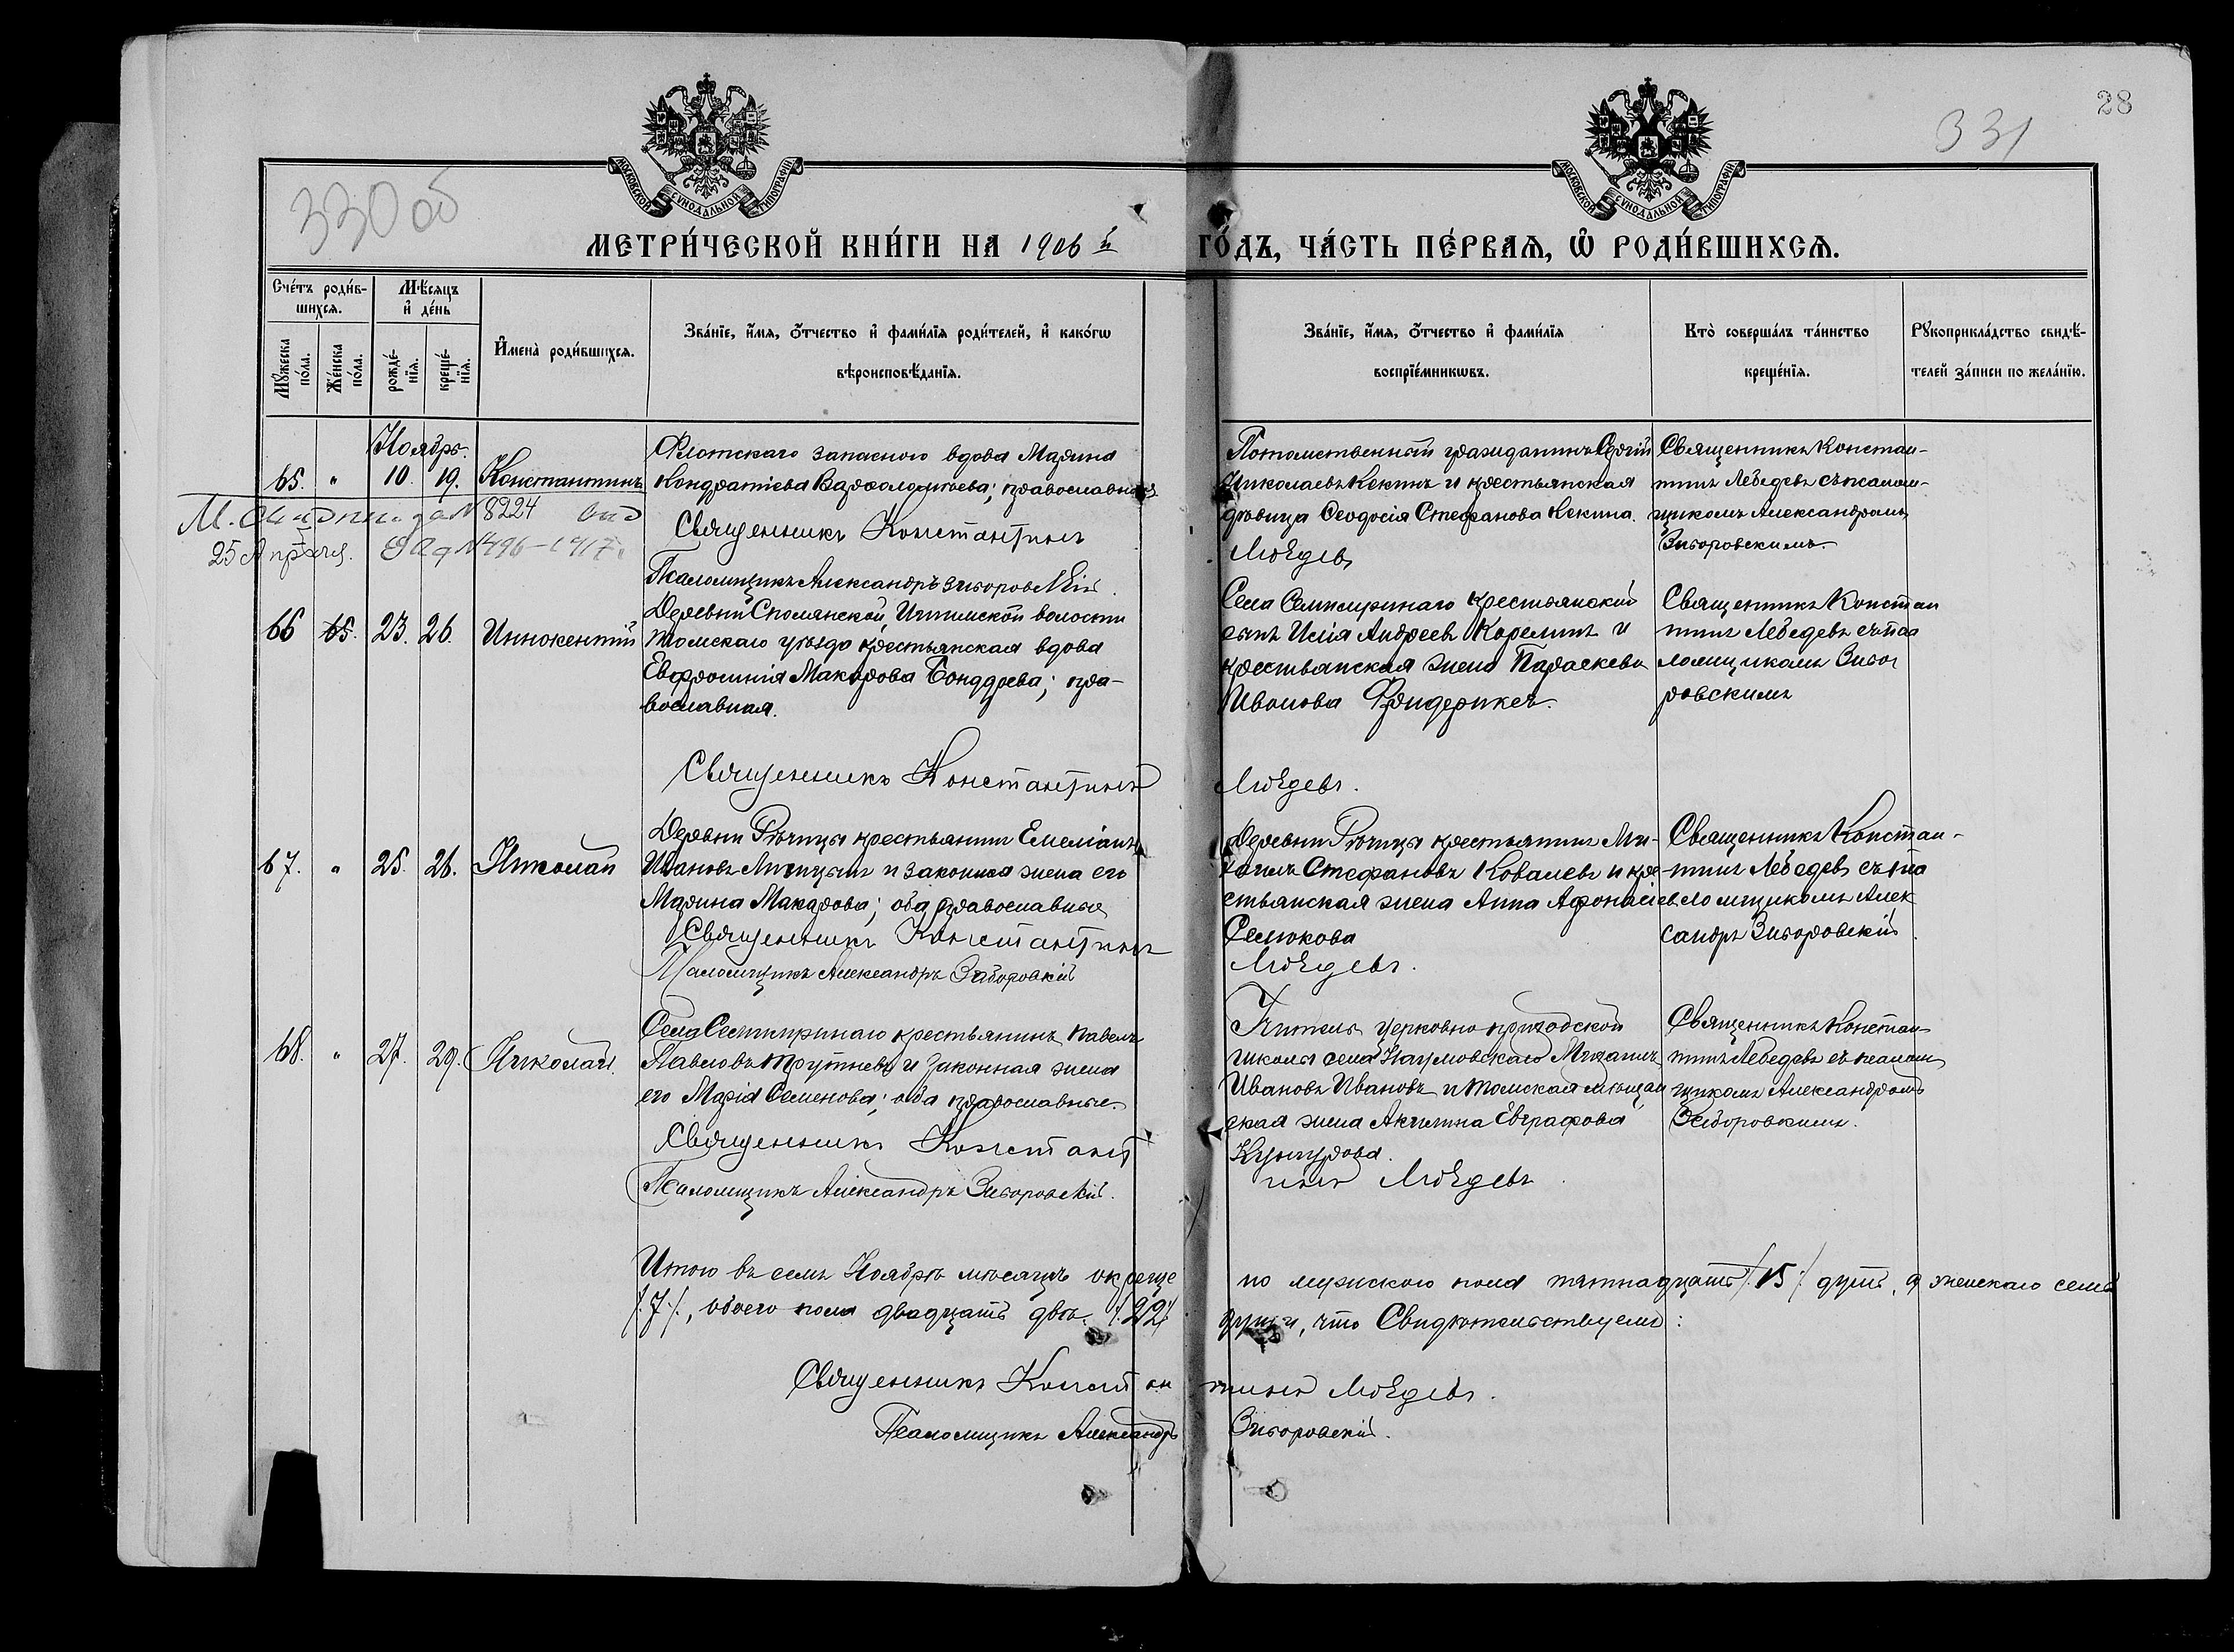 28
331
330 об
МОСКОВСКОЙ СУНОДАЛЬНОЙ ТИПОГРАФІИ
МОСКОВСКОЙ СУНОДАЛЬНОЙ ТИПОГРАФІИ
МЕТРИ́ЧЕСКОЙ КНИ́ГИ НА 1906 й ГО́ДЪ, ЧА́СТЬ ПЕ́РВАѦ, Ѡ҆ РОДИ́ВШИХСѦ.
Сче́тъ роди́в-
шихсѧ.
Мꙋ́жеска по́ла.
Же́нска по́ла.
Мѣ́сѧцъ
и҆ де́нь
рожде́-нїѧ.
креще́-нїѧ.
И҆мена̀ роди́вшихсѧ.
Зва́нїе, и҆́мѧ, ѻ҆́тчество и҆ фами́лїѧ роди́телей, и҆ како́гѡ
вѣроисповѣ́данїѧ.
Зва́нїе, и҆́мѧ, ѻ҆́тчество и҆ фами́лїѧ
воспрїе́мникѡвъ.
Кто̀ соверша́лъ та́инство
креще́нїѧ.
Рꙋкоприкла́дство свидѣ́-
телей за́писи по жела́нїю.
Ноябрь.
65. " 10. 19. Константинъ
Флотскаго запаснаго вдова Марина
Кондратіева Варѳоломѣева; православная
Священникъ Константинъ
Псаломщикъ Александръ Зиборовскій.
Потомственный гражданинъ Сергій
Николаевъ Кекинъ и крестьянская
дѣвица Ѳеодосія Стефанова Кекина.
Лебедевъ
Священникъ Констан-
тинъ Лебедевъ съ псалом-
щикомъ Александромъ
Зиборовскимъ.
за № 8224
25 Апрѣля. № 496-1917.
66 65. 23. 26. Иннокентій
Деревни Спомянской, Ишимской волости
Томскаго уѣзда крестьянская вдова
Евфросинія Макарова Бондарева; пра-
вославная.
Священникъ Константинъ
Села Семилужнаго крестьянскій
сынъ Илія Андреевъ Карелинъ и
крестьянская жена Параскева
Иванова Фридериксъ.
Лебедевъ.
Священникъ Констан
тинъ Лебедевъ съ пса
ломщикомъ Зибо
ровскимъ
67. " 25. 26. Николай
Деревни Рѣчицы крестьянинъ Емеліанъ
Ивановъ и законная жена его
Марина Макарова; оба православные
Священникъ Константинъ
Псаломщикъ Александръ Зиборовскій
Деревни Рѣчицы крестьянинъ Ми-
хаилъ Стефановъ Ковалевъ и кре-
стьянская жена Анна Афонасіева
Селюкова
Лебедевъ.
Священникъ Констан-
тинъ Лебедевъ съ пса
ломщикомъ Алек
сандръ Зиборовскій
68. " 27. 29. Николай.
Села крестьянинъ Павелъ
Павловъ Трутневъ и законная жена
его Марія Семенова; оба православные.
Священникъ Констант
Псаломщикъ Александръ Зиборовскій.
Учитель церковно-приходской
школы села Наумовскаго Михаилъ
Ивановъ Ивановъ и Томская мѣщан
ская жена Акилина Евграфова
Кунгурова.
инъ Лебедевъ
Священникъ Констан
тинъ Лебедевъ съ псалом
щикомъ Александромъ
Зиборовскимъ.
Итого въ семъ Ноябрѣ мѣсяцѣ окреще но мужскаго пола пятнадцать /.15./ душъ, а женскаго семь
/.7./, обоего пола двадцать двѣ /.22./ души, что Свидѣтельствуемъ:
Священникъ Константинъ Лебедевъ.
Псаломщикъ Александръ Зиборовскій.